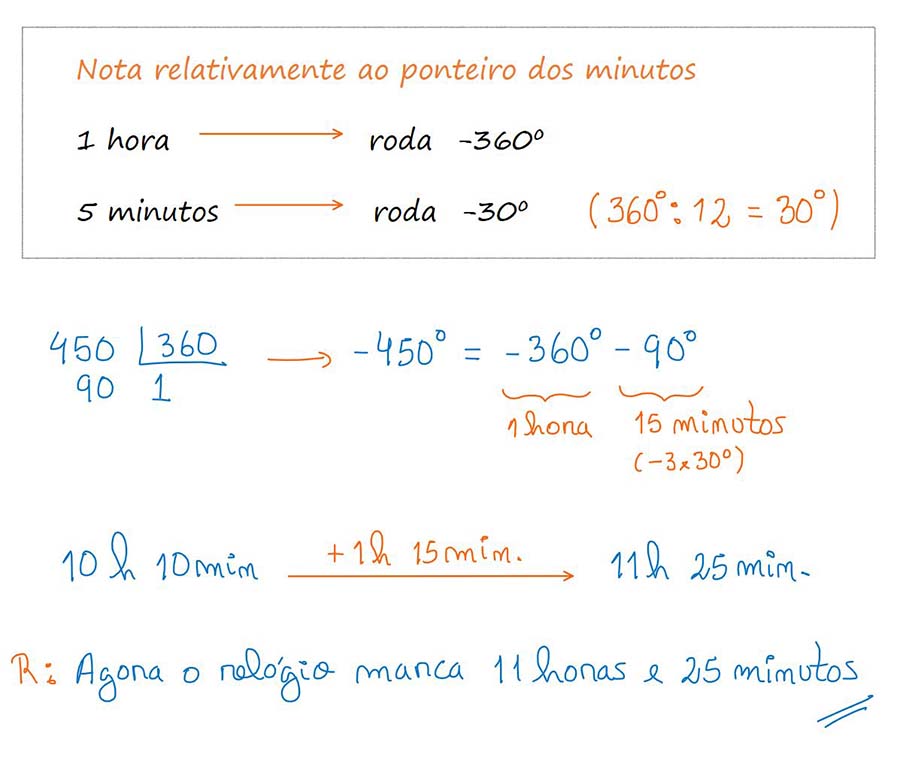 Nota relativamente ao ponteiro dos minutos
1 hora → roda -360º
5 minutos → roda -30º (360° : 12 = 30°)
450 | 360 → -450° = -360° - 90°
90 1
1 hora 15 minutos
(-3x30°)
10 h 10 min + 1h 15 min. → 11h 25 min.
R: Agora o relógio marca 11 horas e 25 minutos